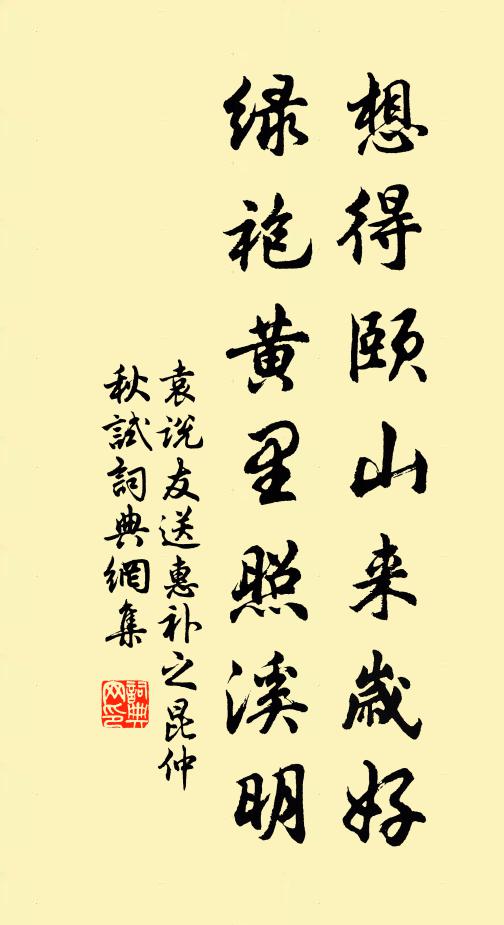 想得颐山来歳好
绿袍黄里照溪明
袁说友送惠补之昆仲
秋試詞典網集
詞典网印